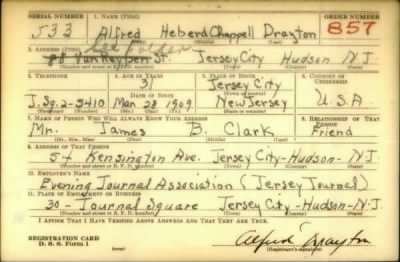 SERIAL NUMBER 1. NAME (Print) ORDER NUMBER
533 Alfred Heberd Chappell Drayton 857
(First) (Middle) (Last)
See Folder
2. ADDRESS (Print)
88 Van Reypen St. Jersey City Hudson N.J.
(Number and street or R. F. D. number) (Town) (County) (State)
3. TELEPHONE 4. AGE IN YEARS 5. PLACE OF BIRTH 6. COUNTRY OF CITIZENSHIP
31 Jersey City
DATE OF BIRTH (Town or county)
J.Sq. 2-5410 Mar 28 1909 New Jersey U.S.A.
(Exchange) (Number) (Mo.) (Day) (Yr.) (State or country)
7. NAME OF PERSON WHO WILL ALWAYS KNOW YOUR ADDRESS 8. RELATIONSHIP OF THAT PERSON
Mr. James B. Clark Friend
(Mr., Mrs., Miss) (First) (Middle) (Last)
9. ADDRESS OF THAT PERSON
54 Kensington Ave. Jersey City-Hudson-N.J.
(Number and street or R. F. D. number) (Town) (County) (State)
10. EMPLOYER'S NAME
Evening Journal Association (Jersey Journal)
11. PLACE OF EMPLOYMENT OR BUSINESS
30 - Journal Square Jersey City-Hudson-N.J.
(Number and street or R. F. D. number) (Town) (County) (State)
I AFFIRM THAT I HAVE VERIFIED ABOVE ANSWERS AND THAT THEY ARE TRUE.
REGISTRATION CARD
D. S. S. Form 1 (over) Alfred Drayton
(Registrant's signature)